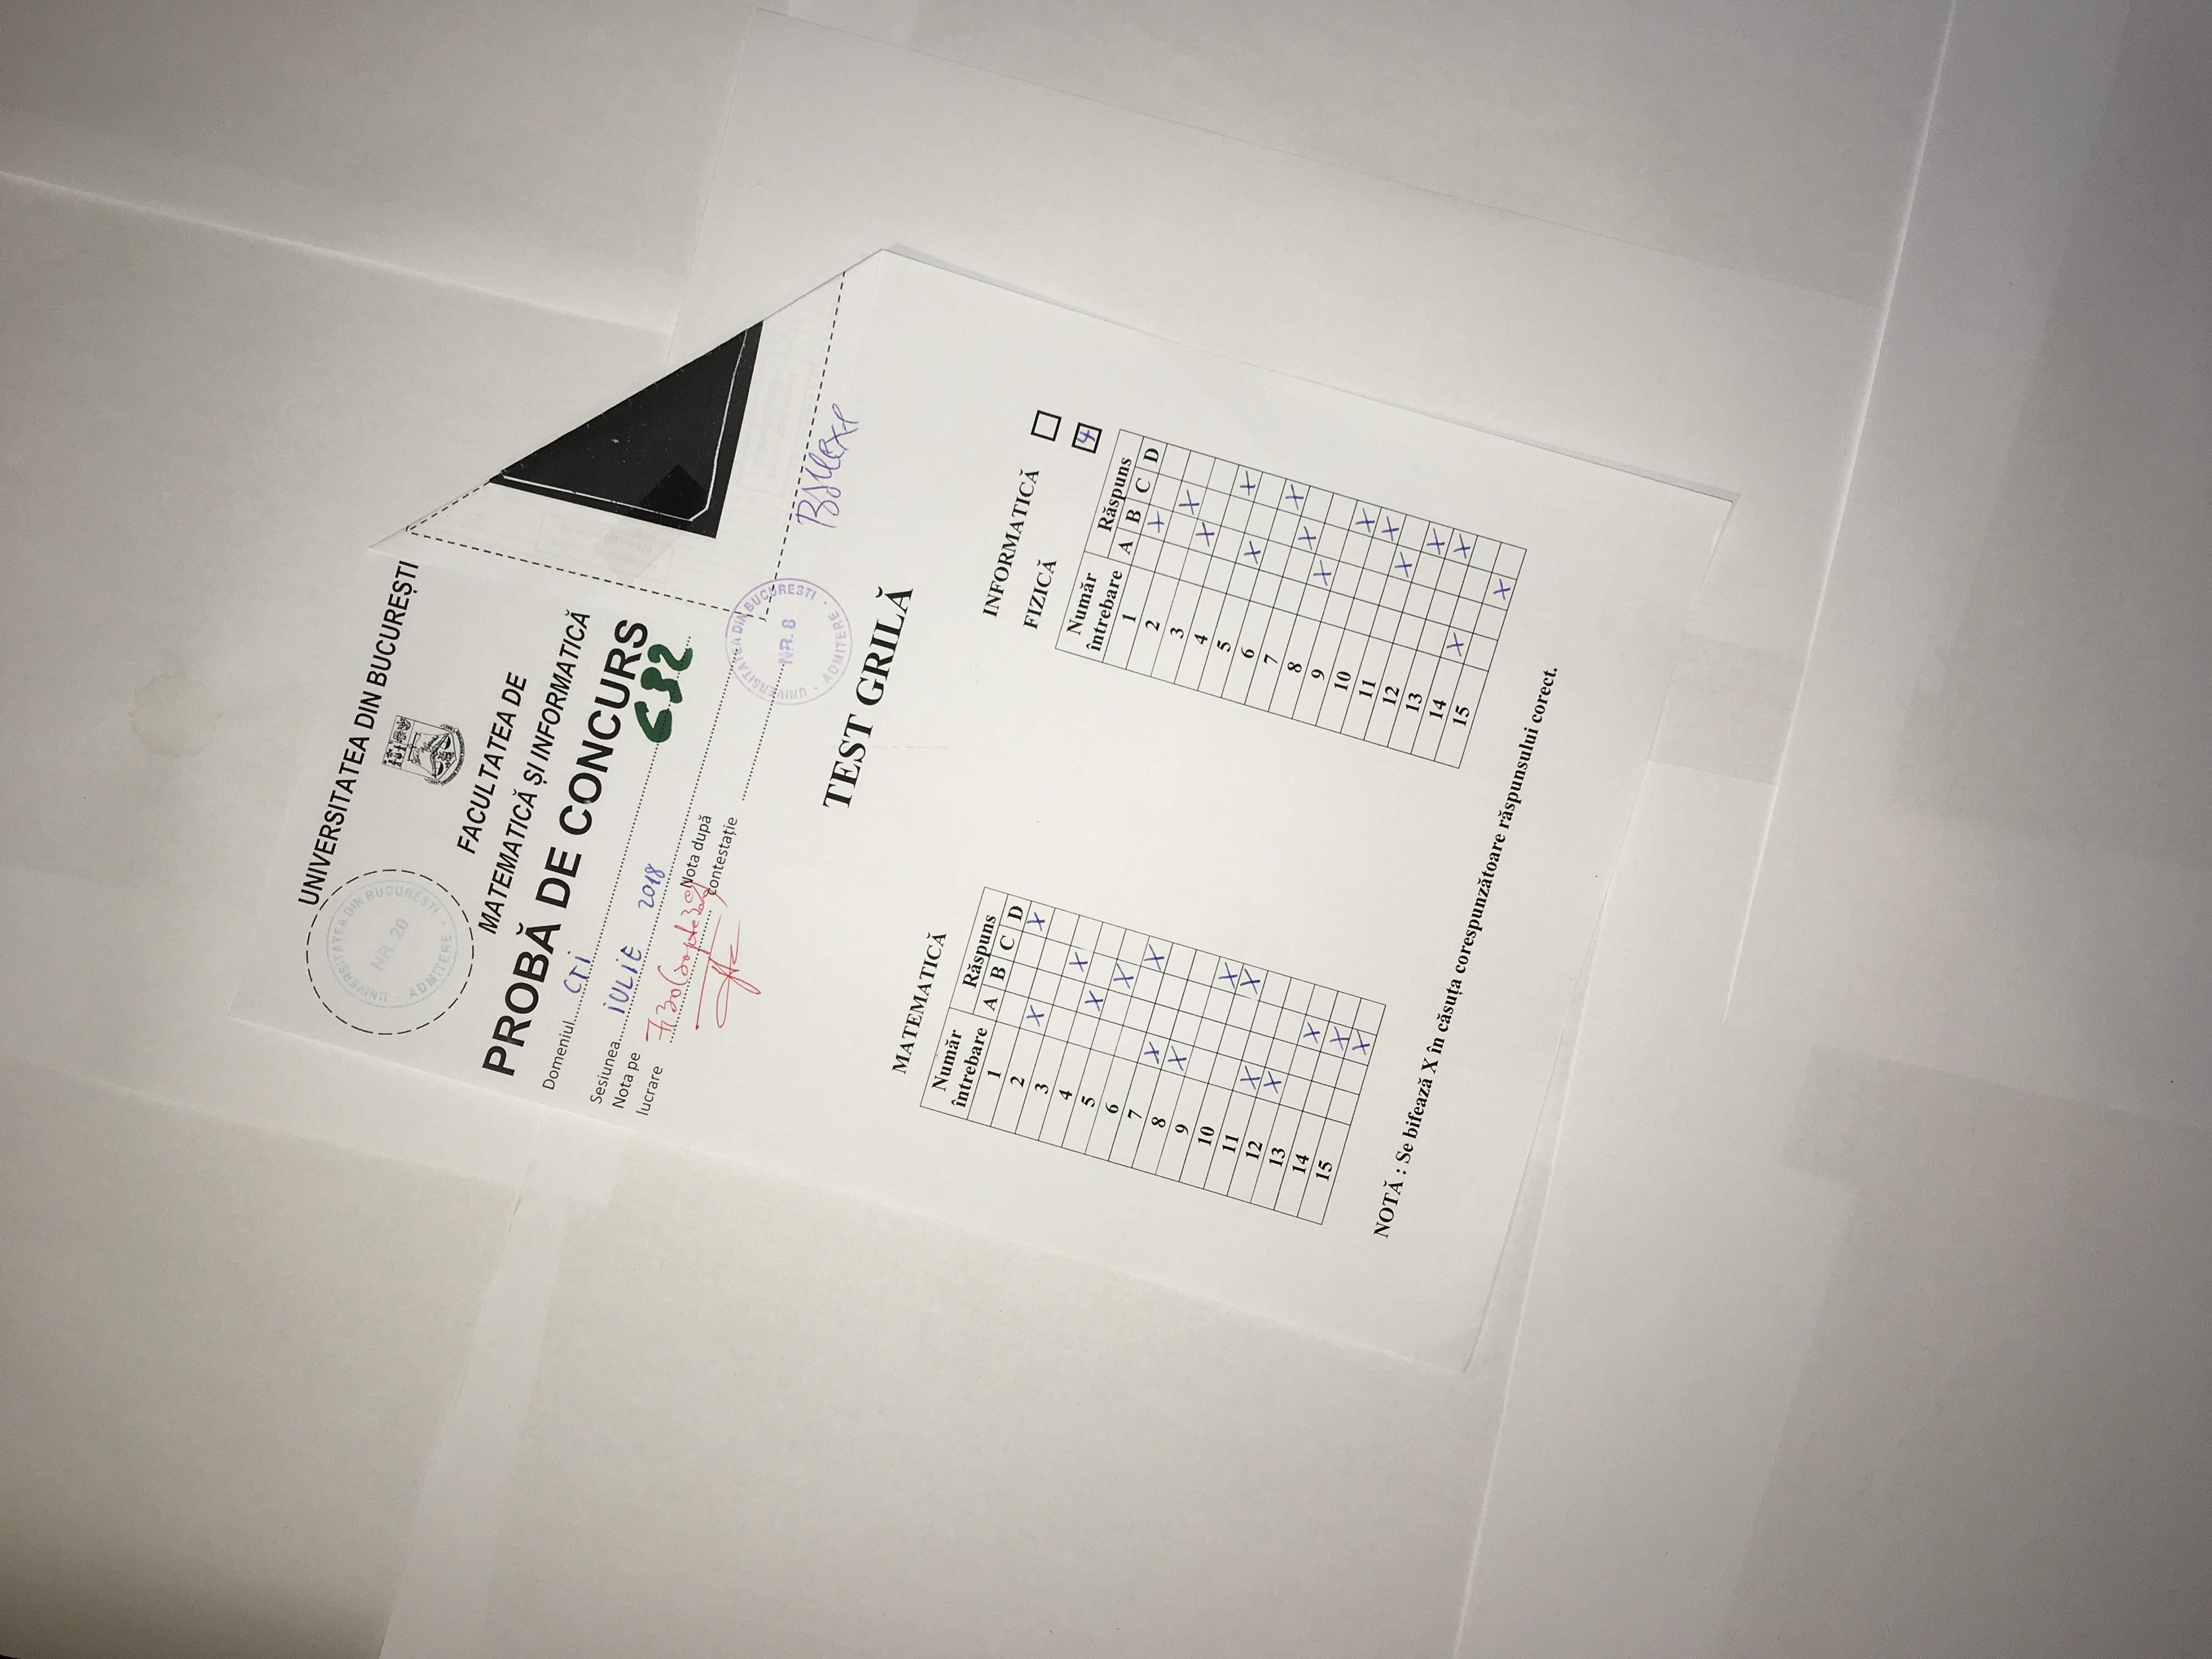 UNIVERSITATEA DIN BUCUREȘTI
UNIVERSITATEA DIN BUCUREȘTI
NR. 20
ADMITERE
FACULTATEA DE
MATEMATICĂ ȘI INFORMATICĂ
PROBĂ DE CONCURS
Domeniul CTI
C32
Sesiunea IULIE 2018
Nota pe
lucrare 7,30 (șapte 30%)
Nota după
contestație
UNIVERSITATEA DIN BUCURESTI
NR. 8
ADMITERE
TEST GRILĂ
MATEMATICĂ
Număr întrebare Răspuns
A B C D
1 X
2 X
3 X
4 X
5 X
6 X
7 X
8 X
9 X
10 X
11 X
12 X
13 X
14 X
15 X
INFORMATICĂ
FIZICĂ X
Număr întrebare Răspuns
A B C D
1 X
2 X
3 X
4 X
5 X
6 X
7 X
8 X
9 X
10 X
11 X
12 X
13 X
14 X
15 X
NOTĂ : Se bifează X în căsuța corespunzătoare răspunsului corect.